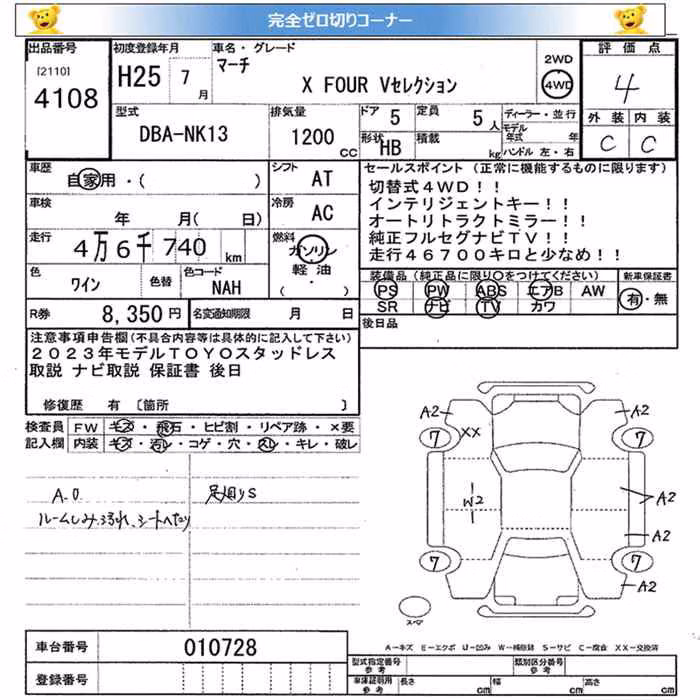 完全ゼロ切りコーナー
出品番号 初度登録年月 車名・グレード 評価点
[2110] マーチ 2WD
4108 H25 7月 X FOUR Vセレクション 4WD 4
型式 排気量 ドア 5 定員 5人 ディーラー・並行 外装 内装
DBA-NK13 1200 CC 形状 HB 積載 kg モデル年式 年 C C
ハンドル 左・右
車歴 自家用・( ) シフト AT セールスポイント (正常に機能するものに限ります)
車検 年 月( 日) 冷房 AC 切替式4WD!!
インテリジェントキー!!
オートリトラクトミラー!!
純正フルセグナビTV!!
走行46700キロと少なめ!!
走行 4万6千740 km 燃料 ガソリン・軽油・( )
色 ワイン 色替 色コード NAH
装備品(純正品に限り○をつけてください) 新車保証書
PS PW ABS エアB AW 有・無
SR ナビ TV カワ
R券 8,350円 名変通知期限 月 日 後日品
注意事項申告欄(不具合内容等は具体的に記入して下さい)
2023年モデルTOYOスタッドレス
取説 ナビ取説 保証書 後日
修復歴 有 〔箇所 〕
検査員 FW キズ・飛石・ヒビ割・リペア跡・×要
記入欄 内装 キズ・汚レ・コゲ・穴・スレ・キレ・破レ
A.O 足廻りS
ルームしみ、汚れ、シートへたり
A2 A2
XX
7 7
W2 A2
A2
7 7
A2
スペア
A-キズ E-エクボ U-凹み W-補修跡 S-サビ C-腐食 XX-交換済
車台番号 010728
登録番号
型式指定番号 参考 類別区分番号 参考
車庫証明用 参考 長さ cm 幅 cm 高さ cm